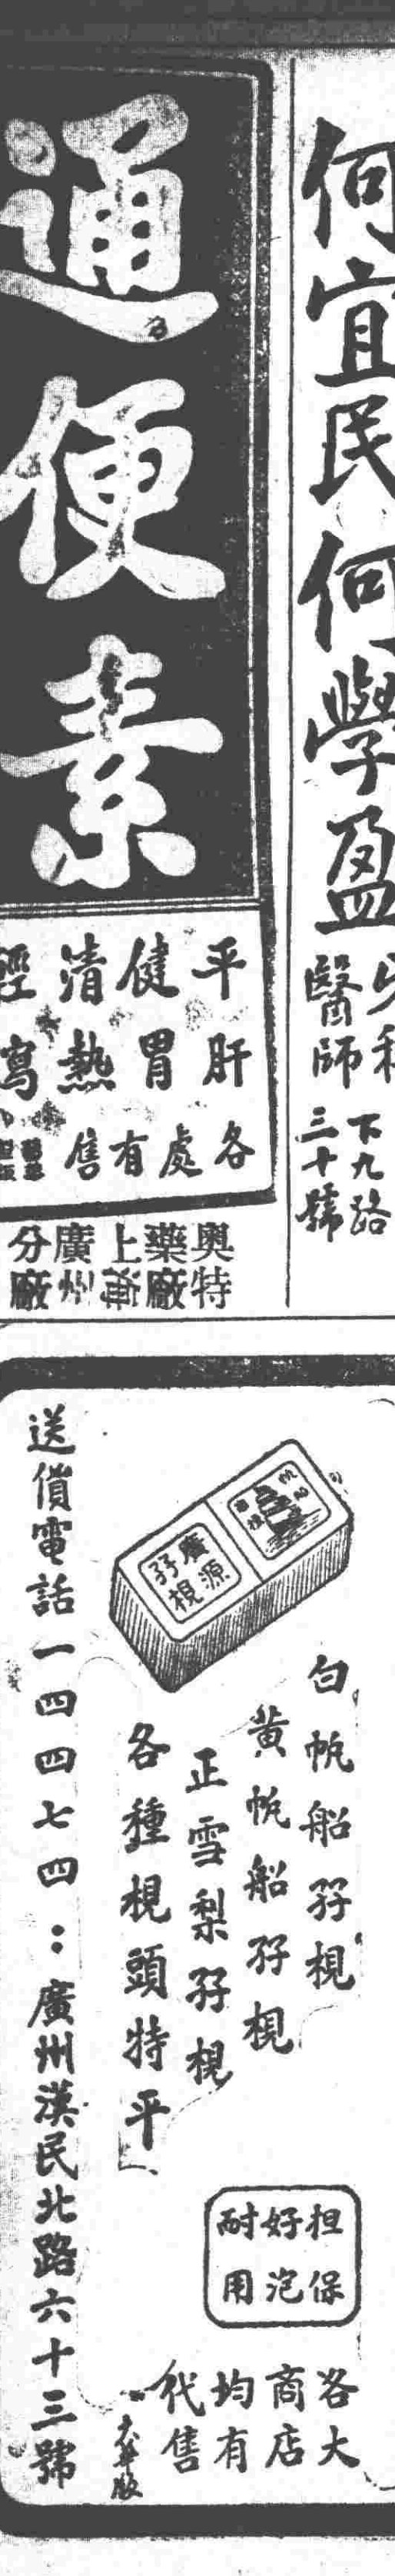 何宜民何學盈
牙科
醫師
下九路
三十號
通便素
平肝
健胃
清熱
輕瀉
各處有售
奥特
藥廠
上海
廣州
分廠
廣源
孖枧
白帆船孖枧
黃帆船孖枧
正雪梨孖枧
各種枧頭特平
担保
好泡
耐用
各大
商店
均有
代售
大華版
送貨電話一四四七四：廣州漢民北路六十三號